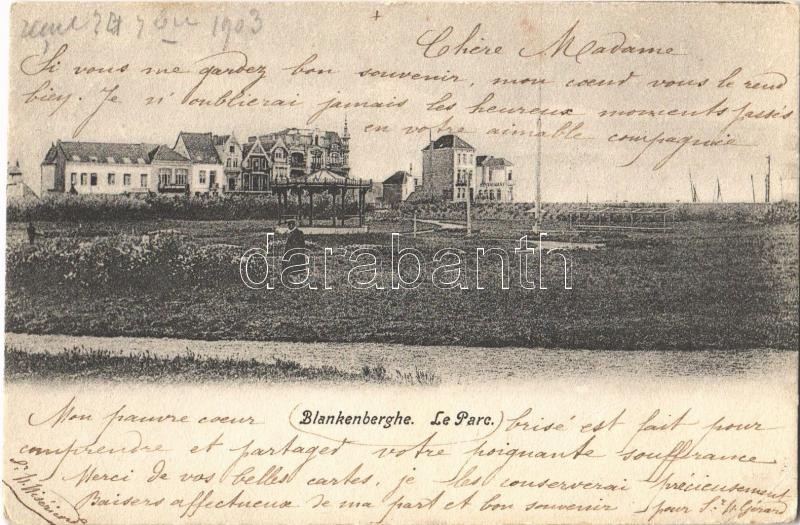 24 7bre 1903
Chère Madame
Si vous me gardez bon souvenir, mon coeur vous le rend
bien. Je n'oublierai jamais les heureux moments passés
en votre aimable compagnie
RESTAURANT
darabanth
Mon pauvre coeur (Blankenberghe. Le Parc.) brisé est fait pour
comprendre et partager votre poignante souffrance
Merci de vos belles cartes, je les conserverai précieusement
Baisers affectueux de ma part et bon souvenir pour Sr. St. Gérard
Sr. M.